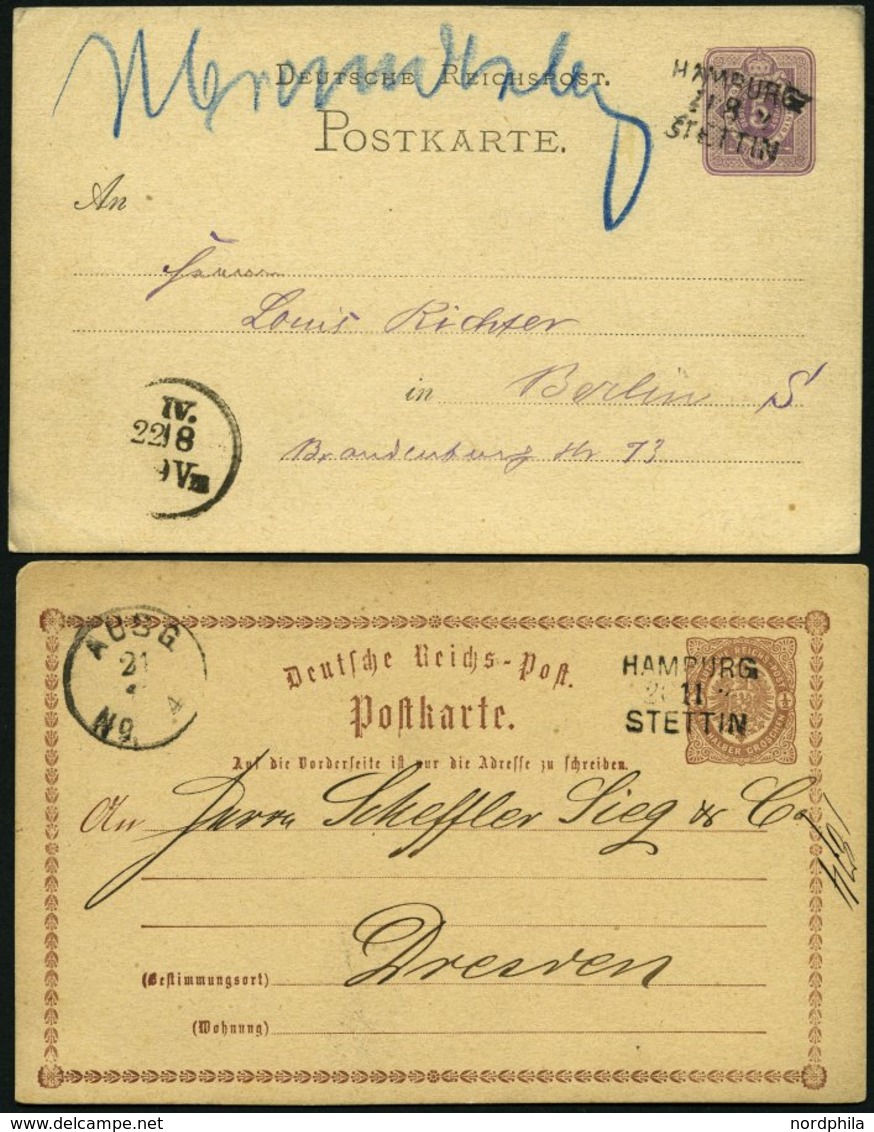 DEUTSCHE REICHSPOST.
POSTKARTE.
HAMBURG
STETTIN
An
Herrn
Louis Richter
in Berlin S
Brandenburg Str 73
IV.
22 8
9 Vm
Deutsche Reichs-Post.
Postkarte.
Auf die Vorderseite ist nur die Adresse zu schreiben.
AUSG
21
4
No
HAMBURG
11
STETTIN
HALBER GROSCHEN
An Herrn Scheffler Sieg & Co
Dresden
(Bestimmungsort)
(Wohnung)
nordphila